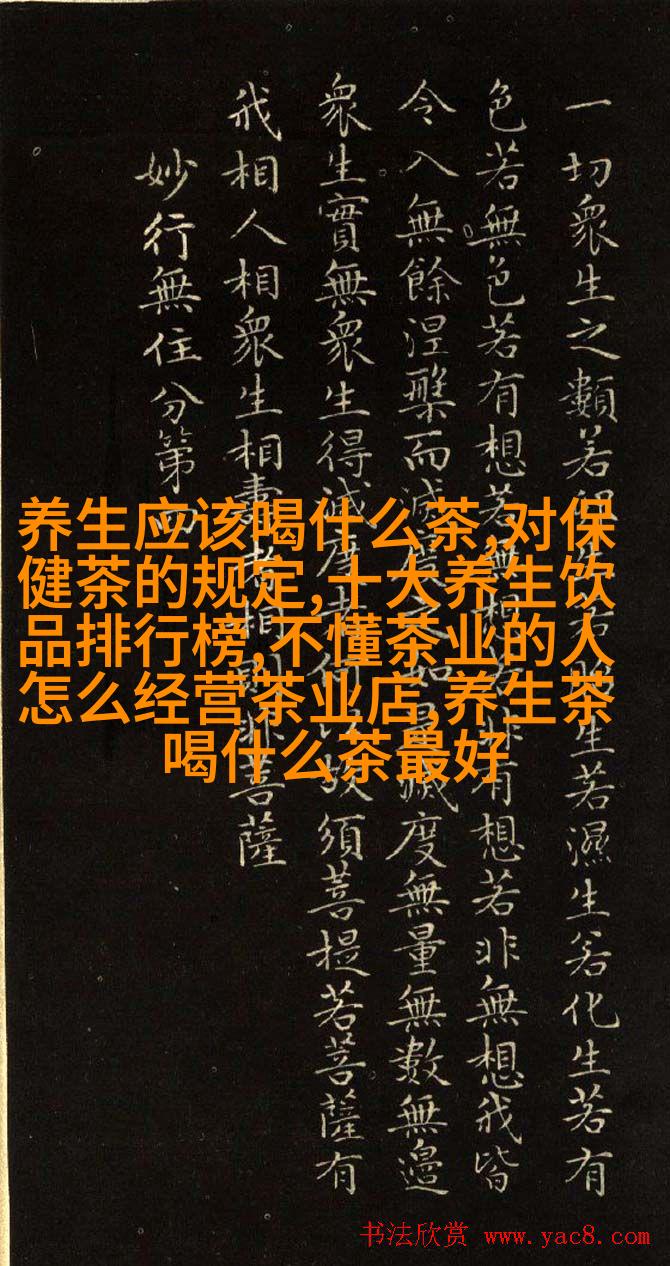 一切衆生之類若卵生若胎生若濕生若化生若有
色若無色若有想若無想若非有想若非無想我皆
令入無餘涅槃而滅度之如是滅度無量無數無邊
衆生實無衆生得滅度者何以故須菩提若菩薩有
我相人相衆生相壽者相則非菩薩
妙行無住分第四
养生应该喝什么茶,对保
健茶的规定,十大养生饮
品排行榜,不懂茶业的人
怎么经营茶业店,养生茶
喝什么茶最好
书法欣赏 www.yac8.com